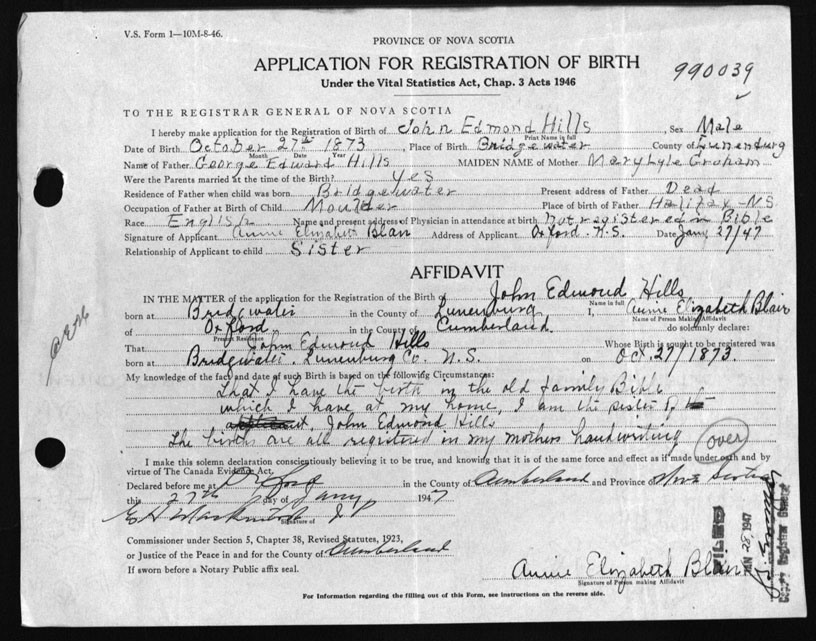 V.S. Form 1—10M-8-46.
PROVINCE OF NOVA SCOTIA
APPLICATION FOR REGISTRATION OF BIRTH
Under the Vital Statistics Act, Chap. 3 Acts 1946
990039
TO THE REGISTRAR GENERAL OF NOVA SCOTIA
I hereby make application for the Registration of Birth of John Edmond Hills Sex Male
Print Name in full
Date of Birth October 27th 1873 Place of Birth Bridgewater County of Lunenburg
Month Date Year
Name of Father George Edward Hills MAIDEN NAME of Mother Mary Lyle Groham
Were the Parents married at the time of the Birth? Yes
Residence of Father when child was born Bridgewater Present address of Father Dead
Occupation of Father at Birth of Child Moulder Place of birth of Father Halifax-N.S.
Race English Name and present address of Physician in attendance at birth Not registered in Bible
Signature of Applicant Annie Elizabeth Blair Address of Applicant Oxford-N.S. Date Jany 27/47
Relationship of Applicant to child Sister
AFFIDAVIT
IN THE MATTER of the application for the Registration of the Birth of John Edmond Hills
Name in full
born at Bridgwater in the County of Lunenburg I, Annie Elizabeth Blair
Name of Person Making Affidavit
of Oxford in the County of Cumberland do solemnly declare:
Present Residence
That John Edmond Hills Whose Birth is sought to be registered was
born at Bridgwater Lunenburg Co. N.S. on Oct. 27/1873
My knowledge of the fact and date of such Birth is based on the following Circumstances:
That I have the birth in the old family Bible
which I have at my home, I am the sister of
John Edmond Hills
The births are all registered in my mothers handwriting (over)
I make this solemn declaration conscientiously believing it to be true, and knowing that it is of the same force and effect as if made under oath and by
virtue of The Canada Evidence Act.
Declared before me at Oxford in the County of Cumberland and Province of Nova Scotia
this 27th day of Jany 1947
J P
Signature of
Commissioner under Section 5, Chapter 38, Revised Statutes, 1923,
or Justice of the Peace in and for the County of Cumberland
If sworn before a Notary Public affix seal.
Annie Elizabeth Blair
Signature of Person making Affidavit
JAN 28, 1947
Deputy Registrar General
For Information regarding the filling out of this Form, see instructions on the reverse side.